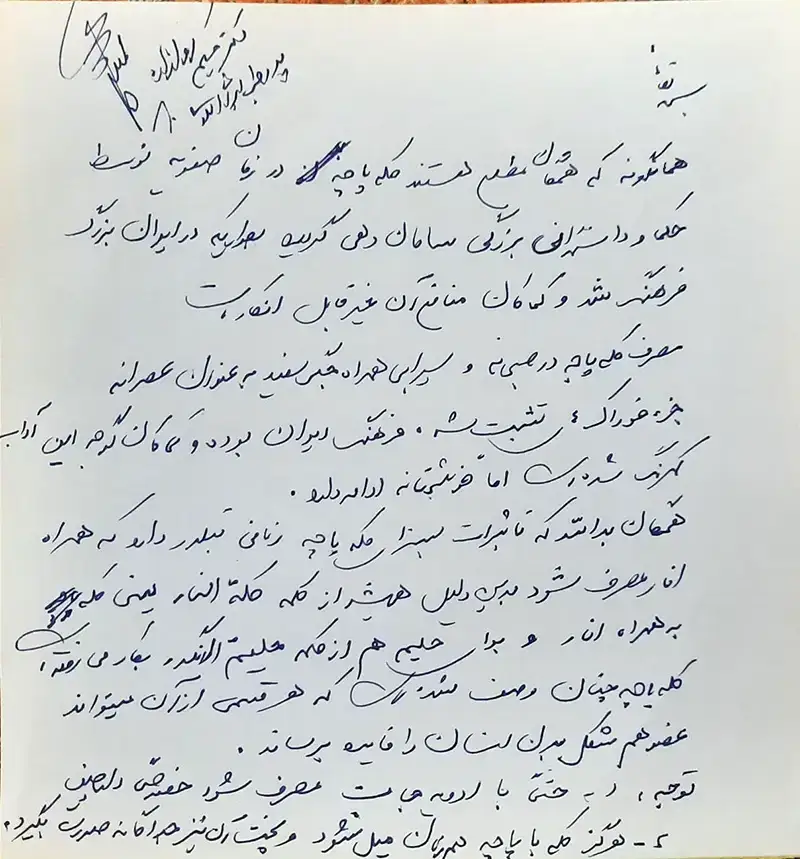 بسمه تعالی
همانگونه که همگان مطلع هستند کله پاچه در زمان صفویه توسط
حکما و دانشمندان بزرگی سامان دهی گردیده بطوریکه در ایران بزرگ
فرهنگ شد و کماکان منافع آن غیر قابل انکار است
مصرف کله پاچه در صبحانه و سیرابی همراه جگر سفید به عنوان عصرانه
جزء خوراک تثبیت شده فرهنگ ایران بوده و کماکان گرچه این آداب
کمرنگ شده است اما خوشبختانه ادامه دارد .
همگان بدانند که تاثیرات کله پاچه زمانی تبلور دارد که همراه
انار مصرف شود بدین دلیل همیشه از کلمه کلة النار یعنی کله
به همراه انار و برای حلیم هم از کلمه بکار می رفته
کله پاچه چنان وصف شده است که هر قسمی از آن میتواند
عضو هم شکل بدن انسان را فایده برساند .
توجه : ۱- حتماً با ادویه جات مصرف شود خصوصاً دارچین
۲- هرگز کله با پاچه همزمان میل نشود و پخت آن نیز جداگانه صورت بگیرد .